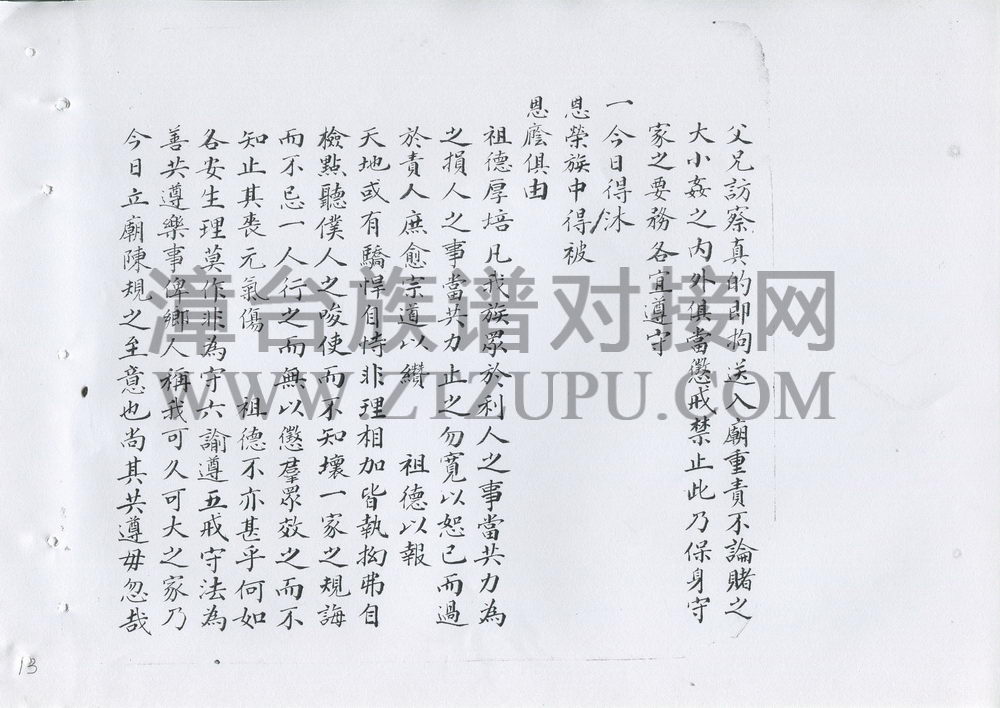 父兄訪察真的即拘送入廟重責不論賭之
大小姦之內外俱當懲戒禁止此乃保身守
家之要務各宜遵守
一今日得沐
恩榮族中得被
恩廕俱由
祖德厚培凡我族眾於利人之事當共力為
之損人之事當共力止之勿寬以恕己而過
於責人庶愈宗道以纘 祖德以報
天地或有驕悍自恃非理相加皆執拗弗自
檢點聽僕人之唆使而不知壞一家之規誨
而不忌一人行之而無以懲羣眾效之而不
知止其喪元氣傷 祖德不亦甚乎何如
各安生理莫作非為守六諭遵五戒守法為
善共遵樂事俾鄉人稱我可久可大之家乃
今日立廟陳規之至意也尚其共遵毋忽哉
13
漳台族谱对接网
WWW.ZTZUPU.COM